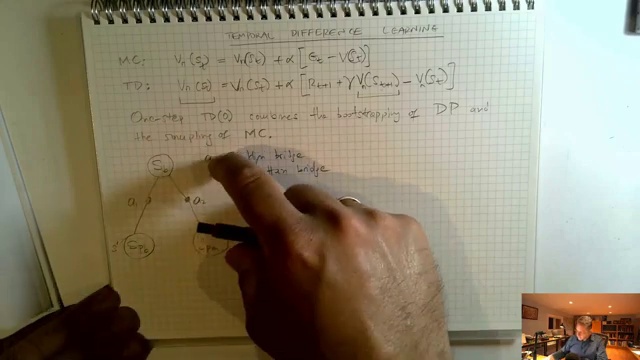 TEMPORAL DIFFERENCE LEARNING
MC: Vπ(St) = Vπ(St) + α [Gt − V(St)]
TD: Vπ(St) = Vπ(St) + α [Rt+1 + γVπ(St+1) − Vπ(St)]
One-step TD(0) combines the bootstrapping of DP and
the sampling of MC.
bridge
Han bridge
a1
a2
s'